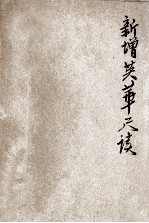 新增英華尺牘